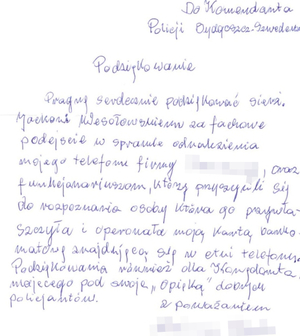 Do Komendanta
Policji Bydgoszcz-Szwederowo
Podziękowanie
Pragnę serdecznie podziękować sierż.
Jackowi Wesołowskiemu za fachowe
podejście w sprawie odnalezienia
mojego telefonu firmy , oraz
funkcjonariuszom, którzy przyczynili się
do rozpoznania osoby która go przywła-
szczyła i operowała moją kartą banko-
matową znajdującą się w etui telefonu.
Podziękowania również dla Komendanta
mającego pod swoją "opieką" dobrych
policjantów.
z poważaniem